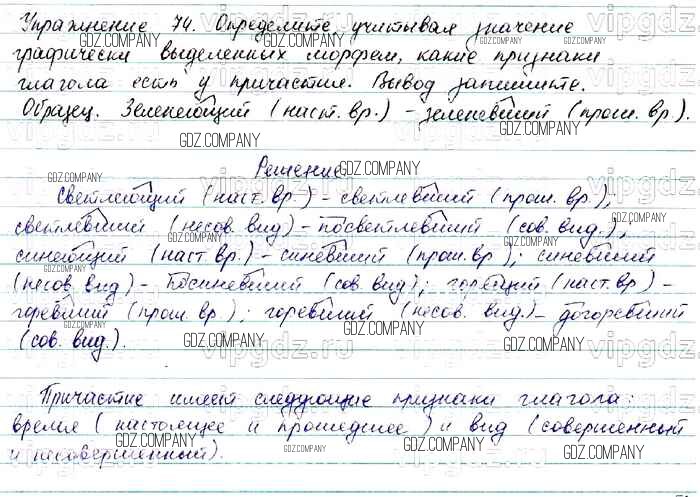 Упражнение 74. Определите учитывая значение
графически выделенных морфем, какие признаки
глагола есть у причастия. Вывод запишите.
Образец. Зеленеющий (наст. вр.) - зеленевший (прош. вр.).
Решение
Светлеющий (наст. вр.) - светлевший (прош. вр.);
светлевший (несов. вид) - посветлевший (сов. вид.);
синеющий (наст. вр.) - синевший (прош. вр); синевший
(несов. вид) - посиневший (сов. вид); горящий (наст. вр) -
горевший (прош. вр); горевший (несов. вид) - догоревший
(сов. вид.).
Причастие имеет следующие признаки глагола:
время (настоящее и прошедшее) и вид (совершенный
и несовершенный).
GDZ.COMPANY
vipgdz.ru